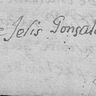 Jelis Gonsal